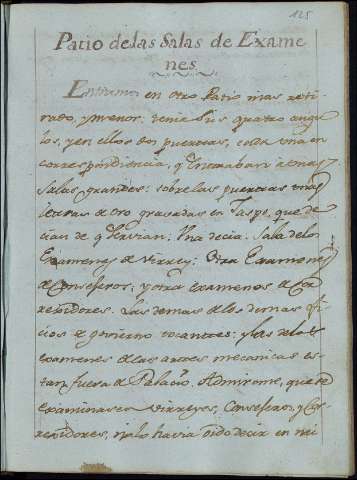 125
Patio delas Salas de Exame
nes
Entramos en otro Patio mas reti
rado, y menor: tenia sus quatro angu
los, y en ellos dos puertas, cada una en
correspondencia, q
Salas grandes: sobre las puertas unas
letras de Oro gravadas en Jaspe, que de
cian de q servian: Una decia: Sala de los
Examenes de Virrey: Otra Examenes
de Consejeros: y otra examenes de Cor
regidores. Las demas de los demas ofi
cios de govierno vacantes: y las de los
examenes de las artes mecanicas es
tan fuera de Palacio. Admirome, que se
examinasen Virreyes, Consejeros, y Cor
regidores, ni lo havia oido decir en mi